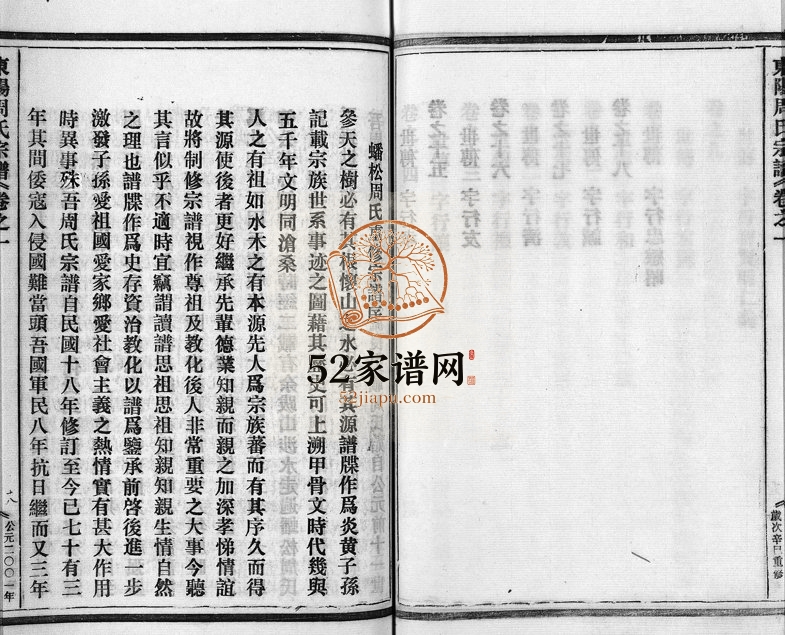 東陽周氏宗譜
卷之一
歲次辛巳重修
蟠松周氏重修宗譜
參天之樹必有其根懷山之水必有其源譜牒作爲炎黄子孫
記載宗族世系事迹之圖藉其歷史可上溯甲骨文時代幾與
五千年文明同滄桑
人之有祖如水木之有本源先人爲宗族蕃而有其序久而得
其源使後者更好繼承先輩德業知親而親之加深孝悌情誼
故將制修宗譜視作尊祖及教化後人非常重要之大事今聽
其言似乎不適時宜竊謂讀譜思祖思祖知親知親生情自然
之理也譜牒作爲史存資治教化以譜爲鑒承前啓後進一步
激發子孫愛祖國愛家鄉愛社會主義之熱情實有甚大作用
時異事殊吾周氏宗譜自民國十八年修訂至今已七十有三
年其間倭寇入侵國難當頭吾國軍民八年抗日繼而又三年
東陽周氏宗譜
卷之一
十八
公元二〇〇一年
52家谱网
52jiapu.com